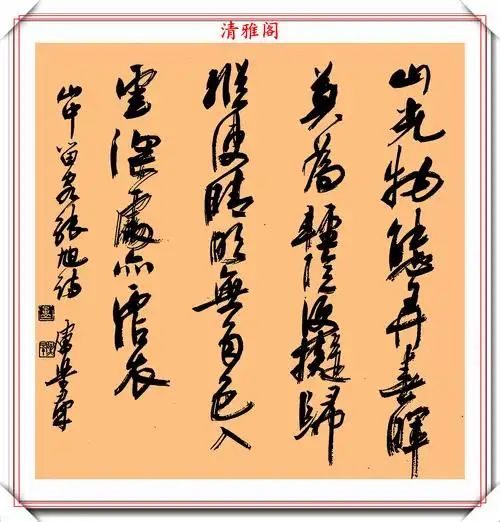 清雅阁
山光物態弄春暉
莫為輕陰便擬歸
縱使晴明無雨色入
雲深處亦沾衣
山中留客張旭詩